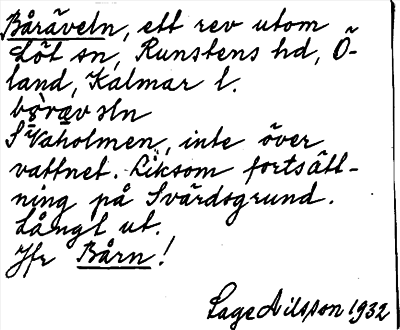 Båräveln, ett rev utom
Löt sn, Runstens hd, Ö-
land, Kalmar l.
S Vaholmen, inte över
vattnet. Liksom fortsätt-
ning på Svärdsgrund.
Långt ut.
Jfr Bårn!
Lage Nilsson 1932